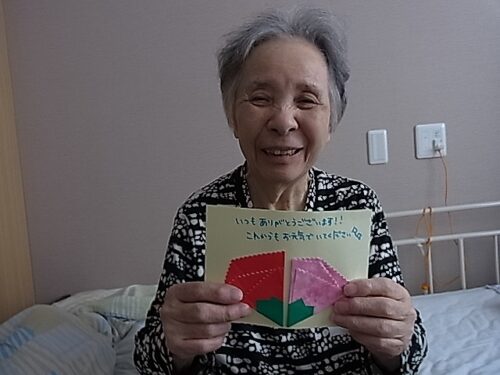 いつもありがとうございます!!
これからもお元気でいてください